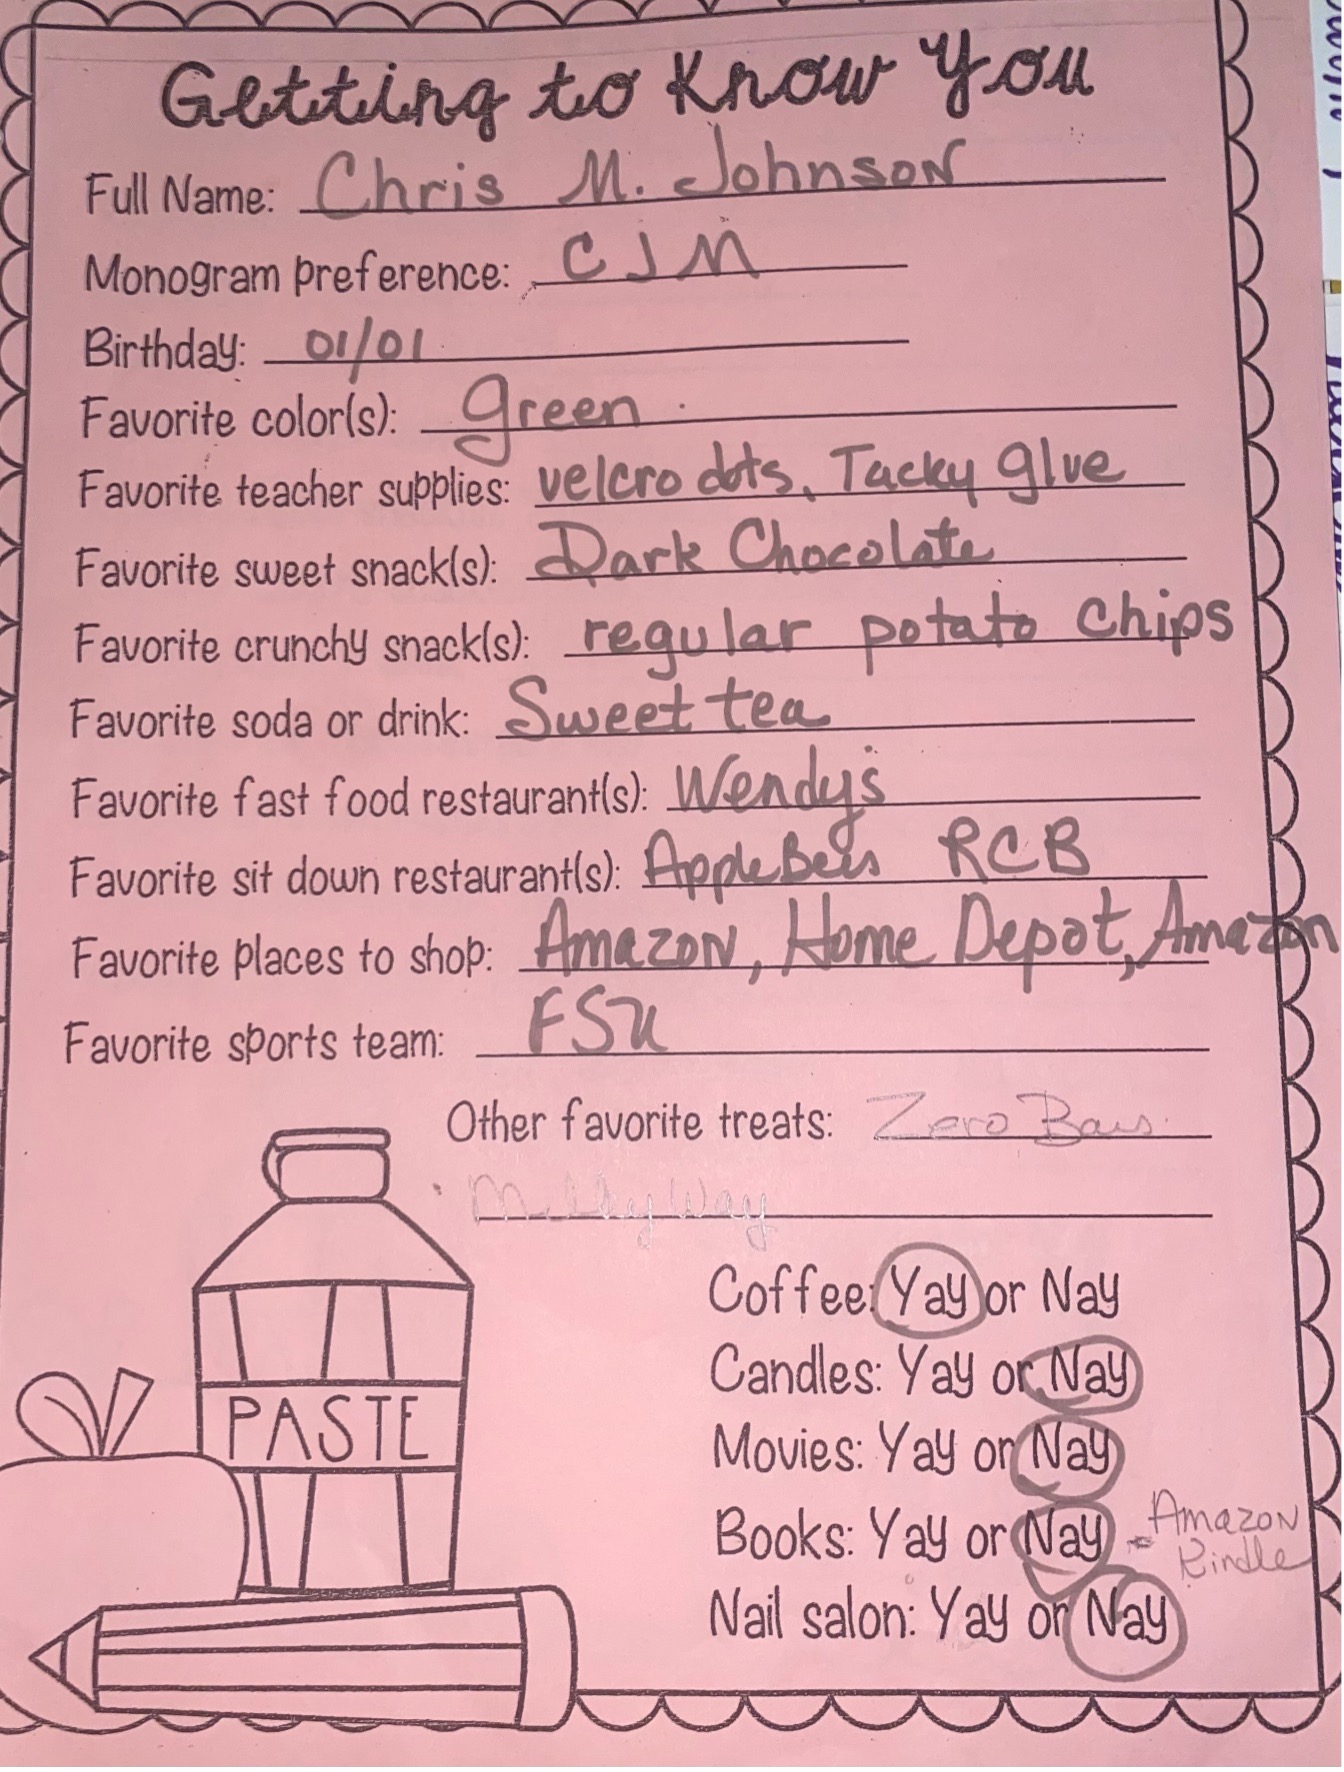 Getting to Know You
Full Name: Chris M. Johnson
Monogram preference: CJM
Birthday: 01/01
Favorite color(s): green
Favorite teacher supplies: velcro dots, Tacky glue
Favorite sweet snack(s): Dark Chocolate
Favorite crunchy snack(s): regular potato chips
Favorite soda or drink: Sweet tea
Favorite fast food restaurant(s): Wendy's
Favorite sit down restaurant(s): AppleBees RCB
Favorite places to shop: Amazon, Home Depot, Amazon
Favorite sports team: FSU
Other favorite treats: Zero Bars
Milky Way
Coffee: Yay or Nay
Candles: Yay or Nay
Movies: Yay or Nay
Books: Yay or Nay - Amazon Kindle
Nail salon: Yay or Nay
PASTE